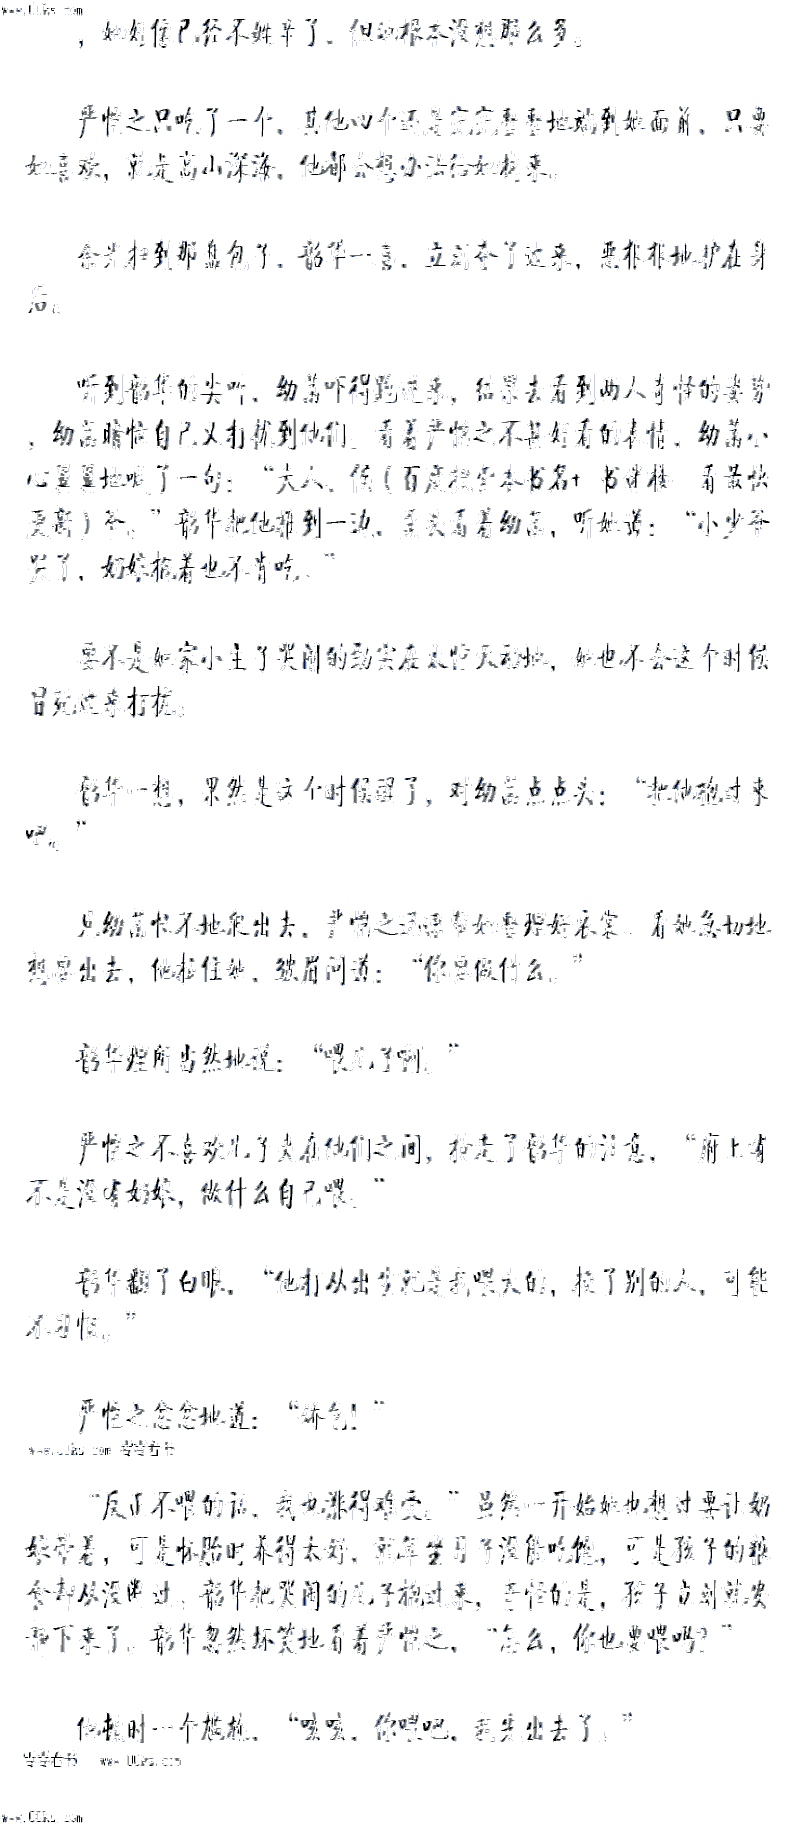 ，她相信已经不姓辛了、但她根本没想那么多。
严恺之只吃了一个、其他四个还是完完整整地端到她面前、只要
她喜欢，就是高山深海、他都会想办法给她摘来。
余光扫到那盘包子、韶华一喜、立刻夺了过来，恶狠狠地护在身
后。
听到韶华的尖叫、幼菡吓得跑进来，结果去看到两人奇怪的姿势
，幼菡暗恼自己又打扰到他们。看着严恺之不甚好看的表情、幼菡小
心翼翼地喊了一句：“大人、侯（百度搜索本书名+ 书迷楼 看最快
更新）爷。”韶华把他推到一边、歪头看着幼菡，听她道：“小少爷
哭了、奶娘抱着也不肯吃。”
要不是她家小主子哭闹的动实在太惊天动地、她也不会这个时候
冒死进来打扰。
韶华一想，果然是这个时候醒了，对幼菡点点头：“把他抱过来
吧。”
见幼菡忙不地爬出去、严恺之 帮她整理好衣裳 看她急切地
想要出去，他按住她、皱眉问道：“你要做什么。”
韶华理所当然地说：“喂儿子啊。”
严恺之不喜欢儿子夹在他们之间，抢走了韶华的注意、“府上有
不是没有奶娘，做什么自己喂。”
韶华翻了白眼、“他打从出生就是我喂大的，换了别的人、可能
不习惯。”
严恺之忿忿地道：“娇气！”
“反正不喂的话、我也涨得难受。”虽然一开始她也想过要让奶
娘带着，可是怀胎时养得太好、就算坐月子没能吃饱，可是孩子的粮
食却从没断过。韶华把哭闹的儿子抱过来，奇怪的是，孩子立刻就安
静下来了。韶华忽然坏笑地看着严恺之、“怎么，你也要喂吗？”
他顿时一个尴尬、“咳咳、你喂吧、我先出去了。”